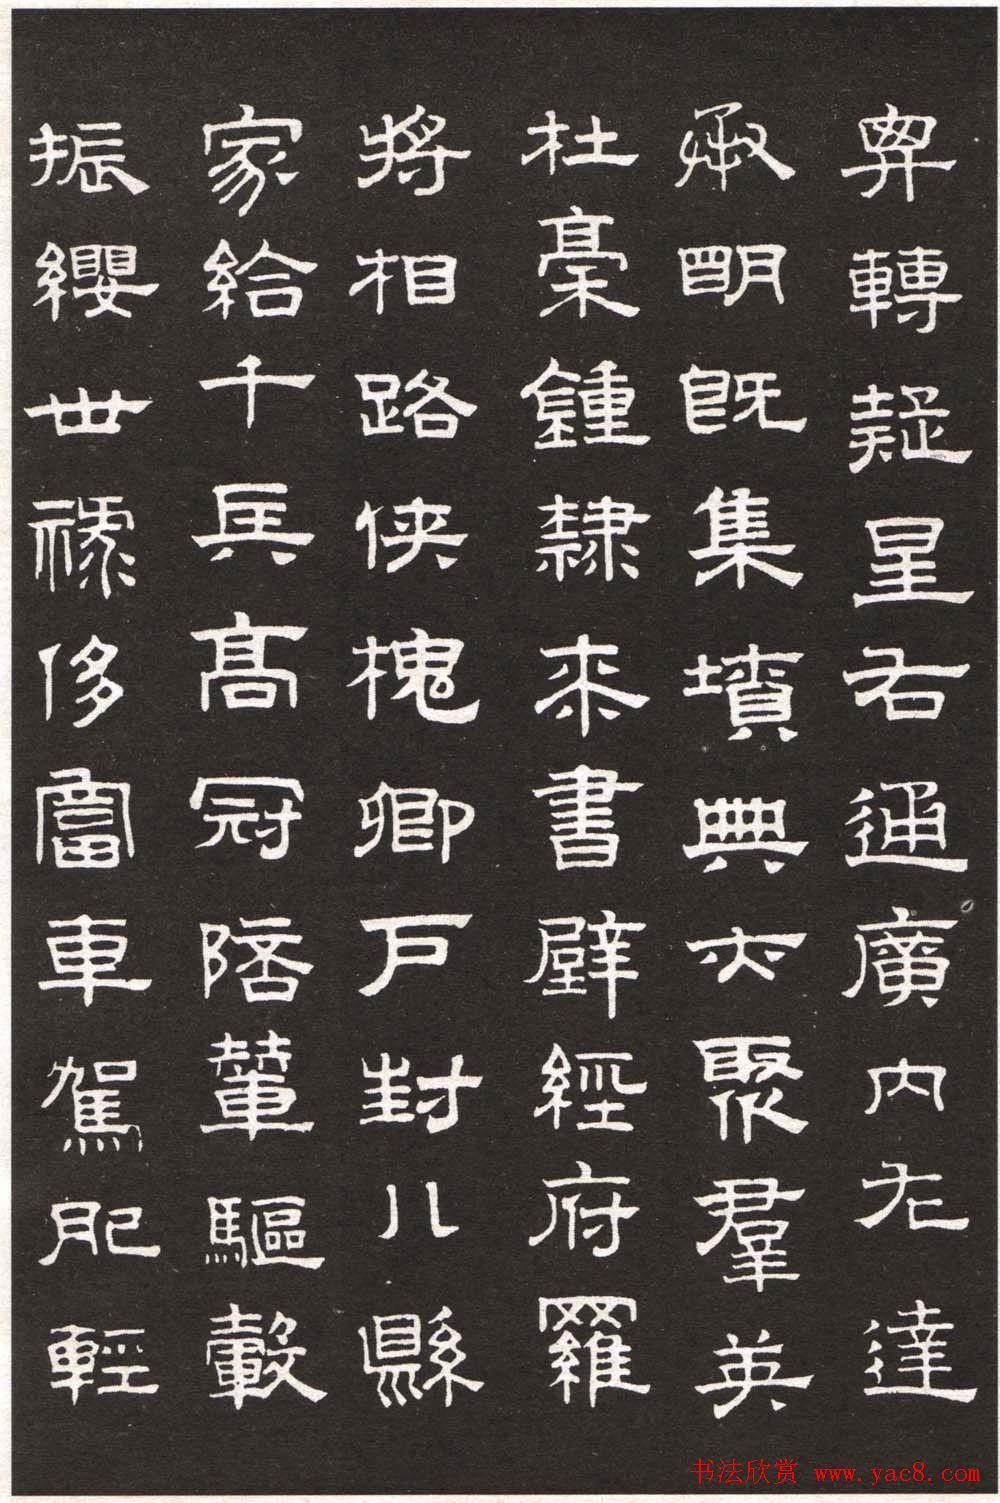 弁轉疑星右通廣内左達
承明既集墳典亦聚羣英
杜稾鍾隸来書壁經府羅
將相路俠槐卿戸封八縣
家給千兵高冠陪輦驅轂
振纓世祿侈富車駕肥輕
书法欣赏 www.yac8.com